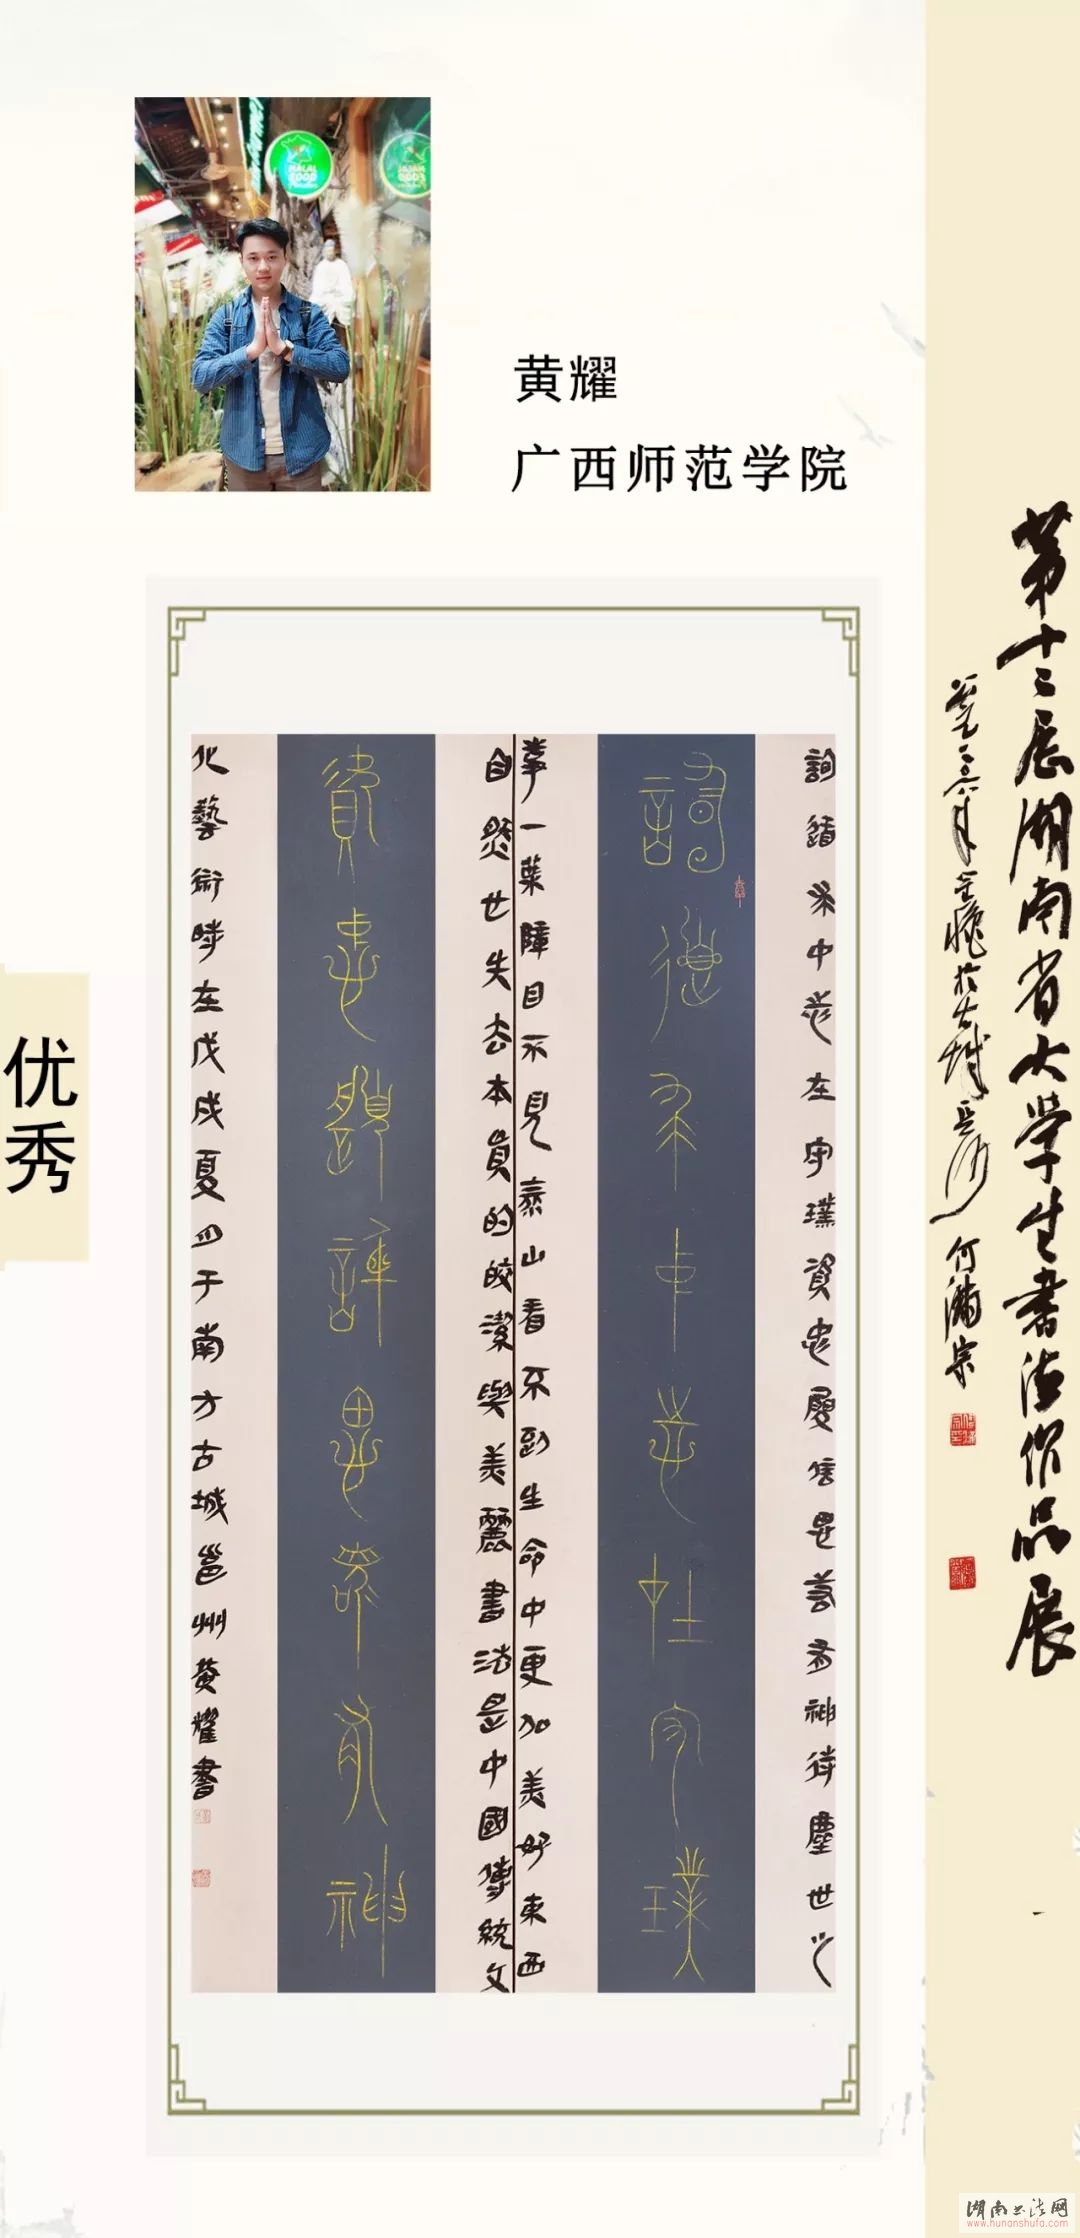 HALAL FOOD
黄耀
广西师范学院
优秀
第十二届湖南省大学生書法作品展
何满宗
循求中道在守璞資忠履信
神待塵世之
一葉障目不見泰山看不到生命中更加美好東西
自然也失去本真的皎潔與美麗書法是中國傳統文
化藝術時在戊戌夏四于南方古城邕州黄耀書
中道在守璞
資忠履
神
湖南书法网
www.hunanshufa.com